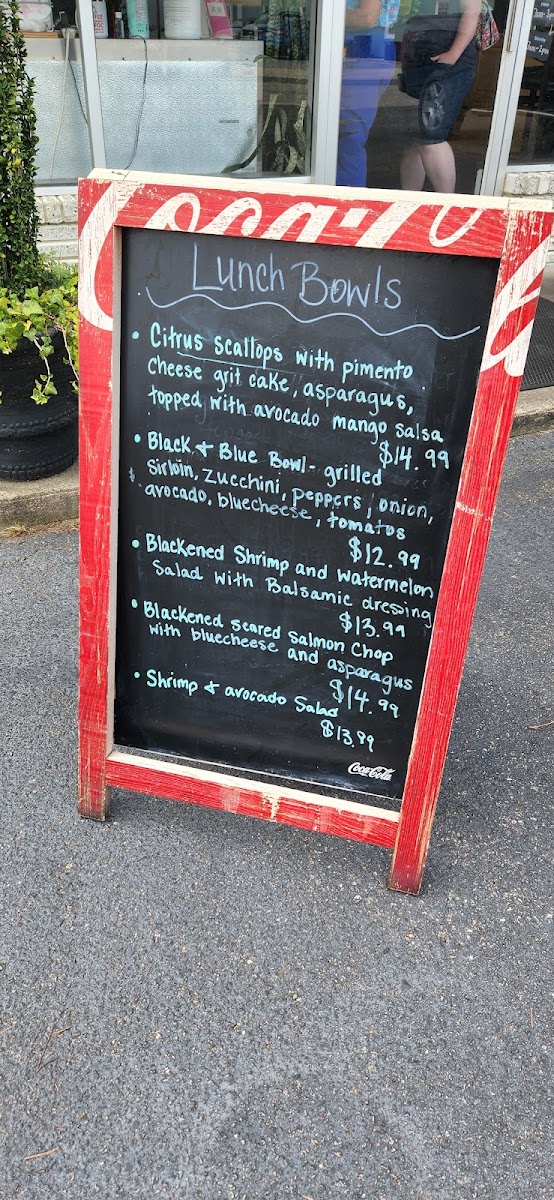 Coca-Cola
Lunch Bowls
• Citrus scallops with pimento
Cheese grit cake, asparagus,
topped with avocado mango salsa
$14.99
• Black & Blue Bowl - grilled
Sirloin, zucchini, peppers, onion,
avocado, bluecheese, tomatos
$12.99
• Blackened Shrimp and watermelon
Salad with Balsamic dressing
$13.99
• Blackened seared salmon Chop
with bluecheese and asparagus
$14.99
• Shrimp & avocado Salad
$13.99
Coca-Cola